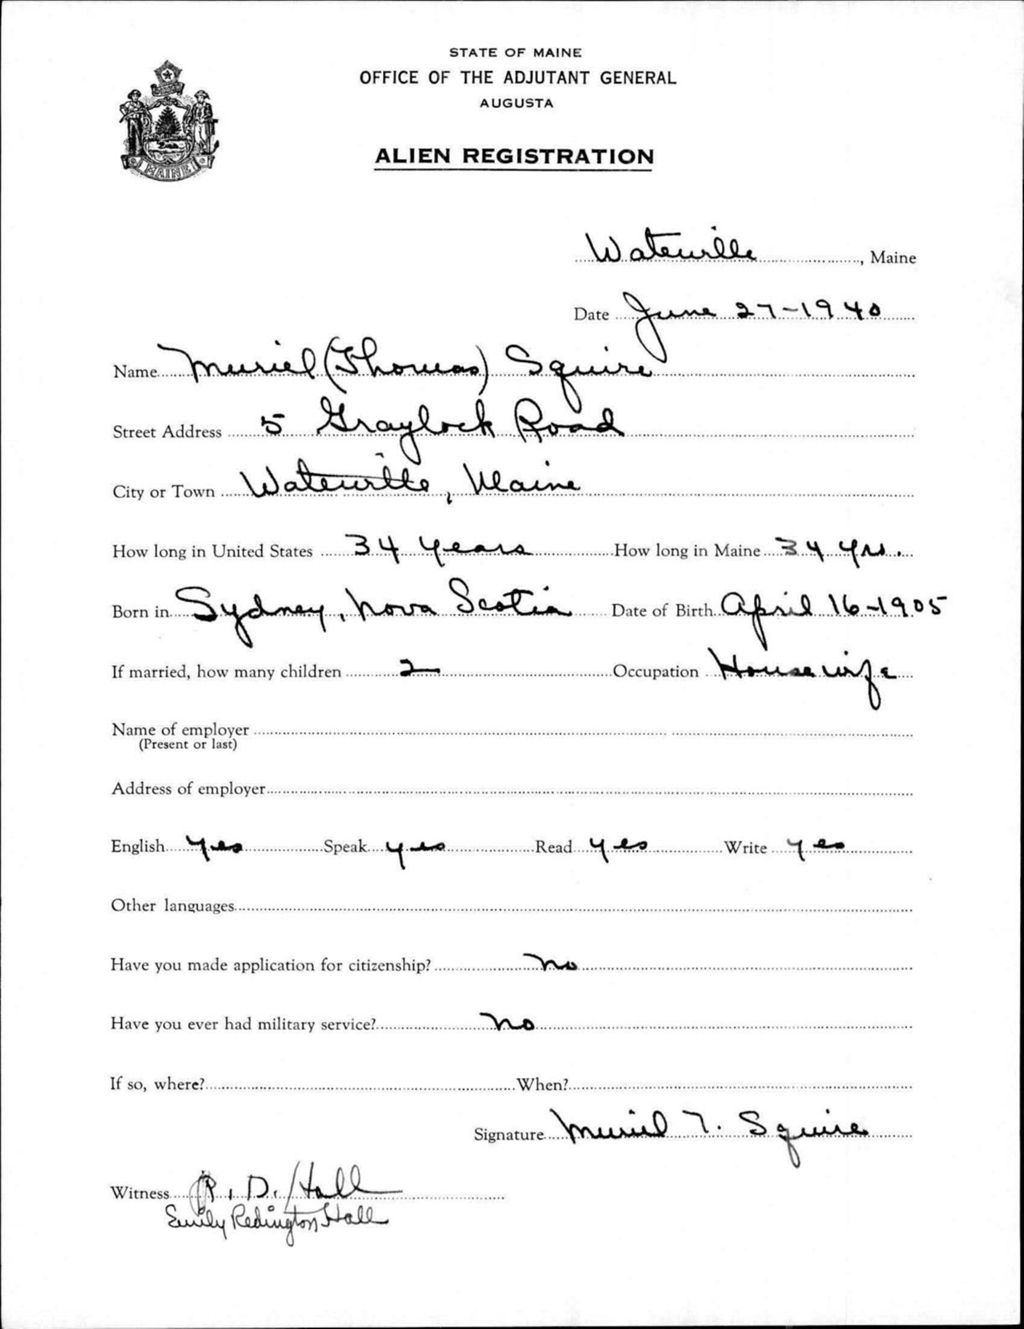 STATE OF MAINE
OFFICE OF THE ADJUTANT GENERAL
AUGUSTA
ALIEN REGISTRATION
MAINE
Waterville, Maine
Date June 27-1940
Name Muriel (Thomas) Squire
Street Address 5 Graylock Road
City or Town Waterville, Maine
How long in United States 34 years How long in Maine 34 yrs.
Born in Sydney, Nova Scotia Date of Birth April 16-1905
If married, how many children 2 Occupation Housewife
Name of employer
(Present or last)
Address of employer
English yes Speak yes Read yes Write yes
Other languages
Have you made application for citizenship? no
Have you ever had military service? no
If so, where? When?
Signature Muriel T. Squire
Witness R. D. Hall
Emily Redington Hall